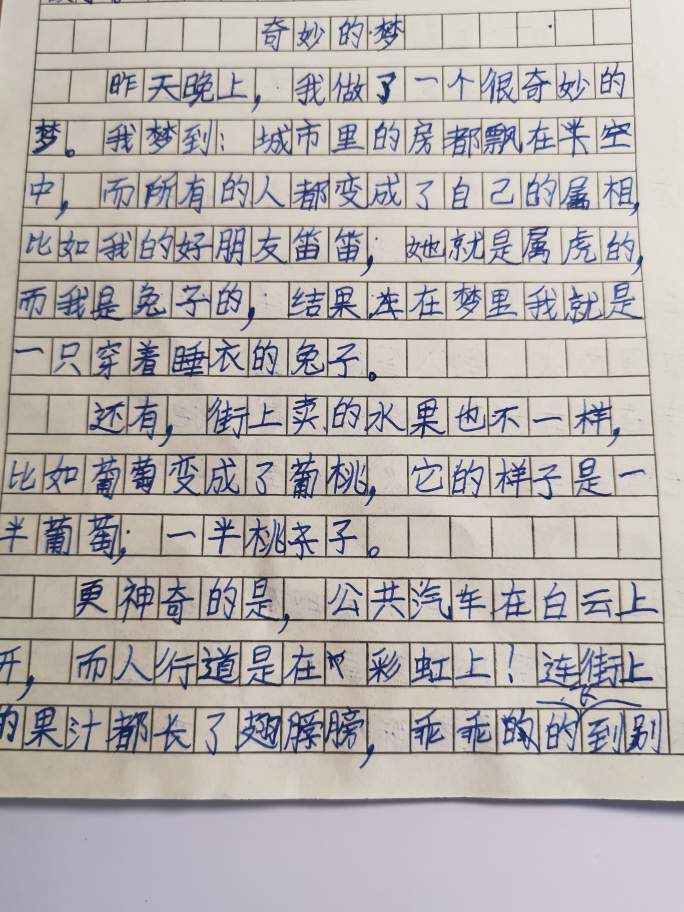 奇妙的梦
昨天晚上，我做了一个很奇妙的
梦。我梦到：城市里的房都飘在半空
中，而所有的人都变成了自己的属相，
比如我的好朋友笛笛，她就是属虎的，
而我是兔子的，结果在梦里我就是
一只穿着睡衣的兔子。
还有，街上卖的水果也不一样，
比如葡萄变成了葡桃，它的样子是一
半葡萄；一半桃子。
更神奇的是，公共汽车在白云上
开，而人行道是在彩虹上！连街上
的果汁都长了翅膀，乖乖的到别